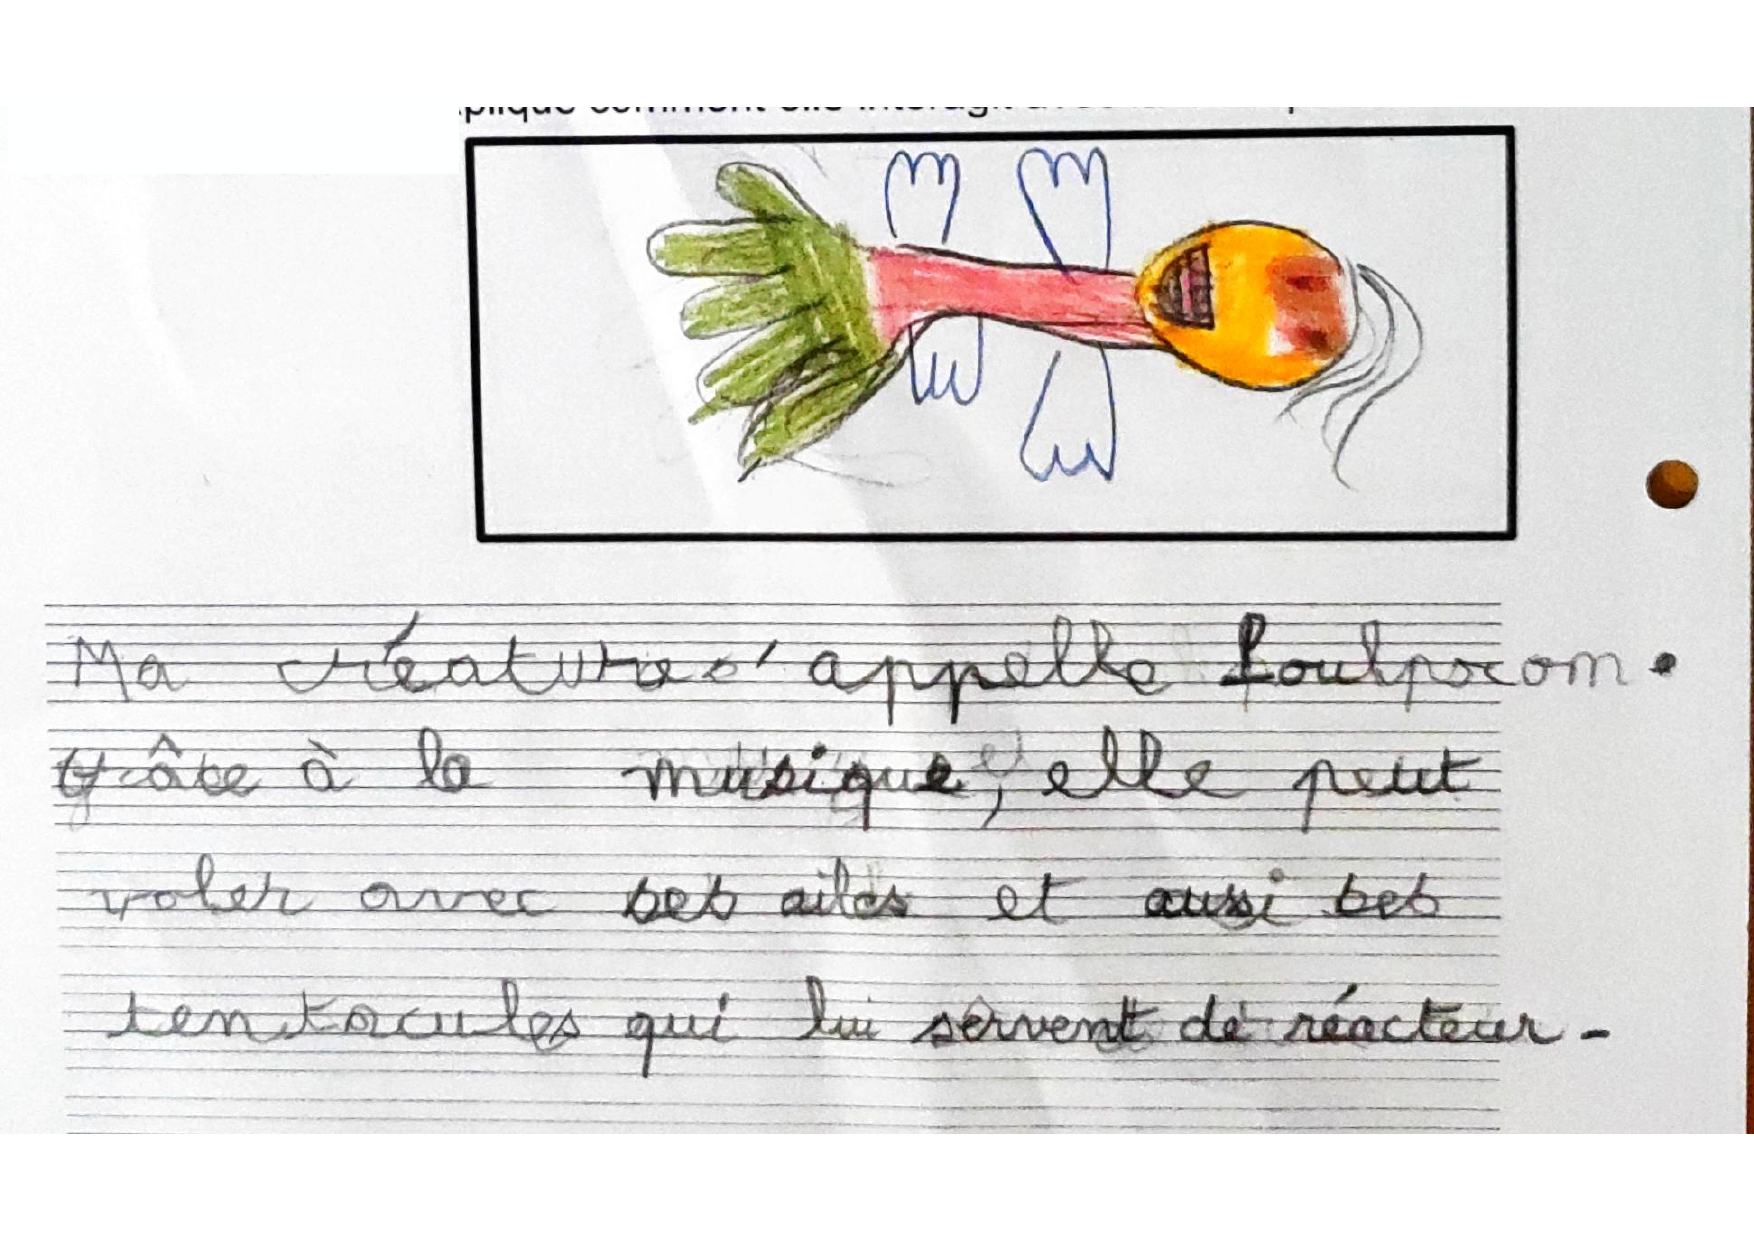 plique comment elle interagit avec la
Ma créature s'appelle Foulpocom.
Grâce à la musique, elle peut
voler avec ses ailes et aussi ses
tentacules qui lui servent de réacteur.